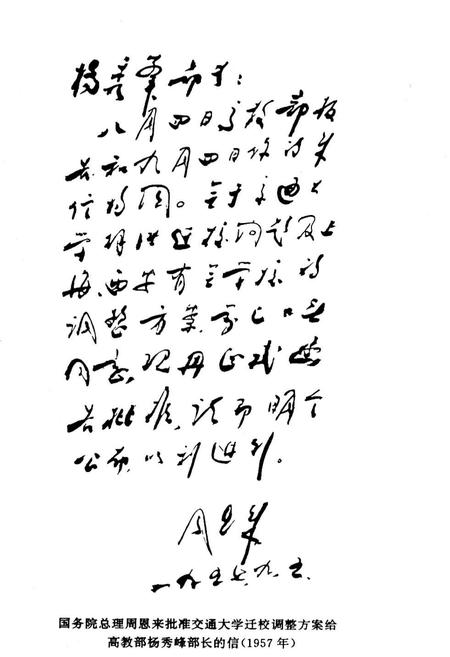 杨秀峰部长：
八月四日高教部报
告和九月四日你的来
信均阅。关于交通大
学解决迁校问题及上
海、西安有关学校的
调整方案，我已口头
同意，现再正式函
告批准，请即明令
公布，以利进行。
周恩来
一九五七.九.五.
国务院总理周恩来批准交通大学迁校调整方案给
高教部杨秀峰部长的信(1957年)